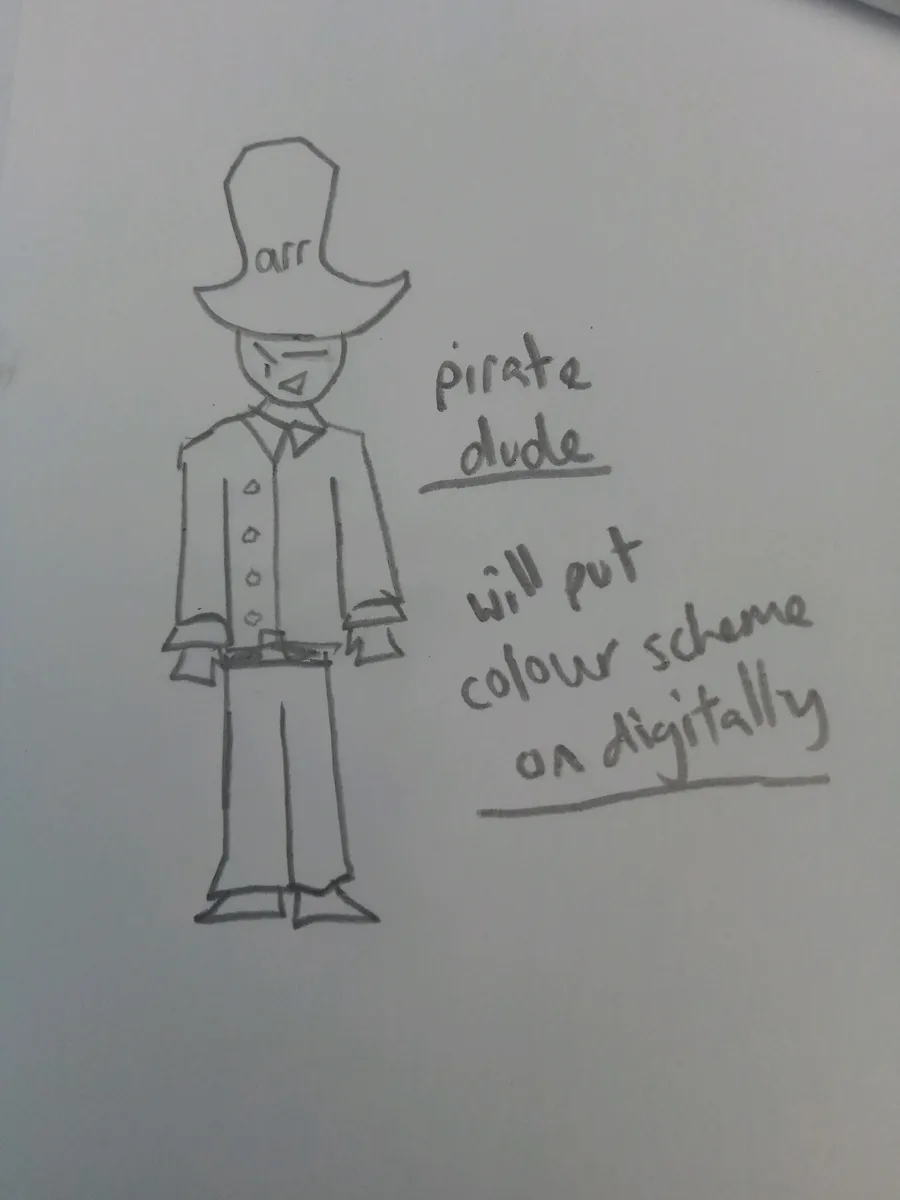 arr
pirate
dude
will put
colour scheme
on digitally